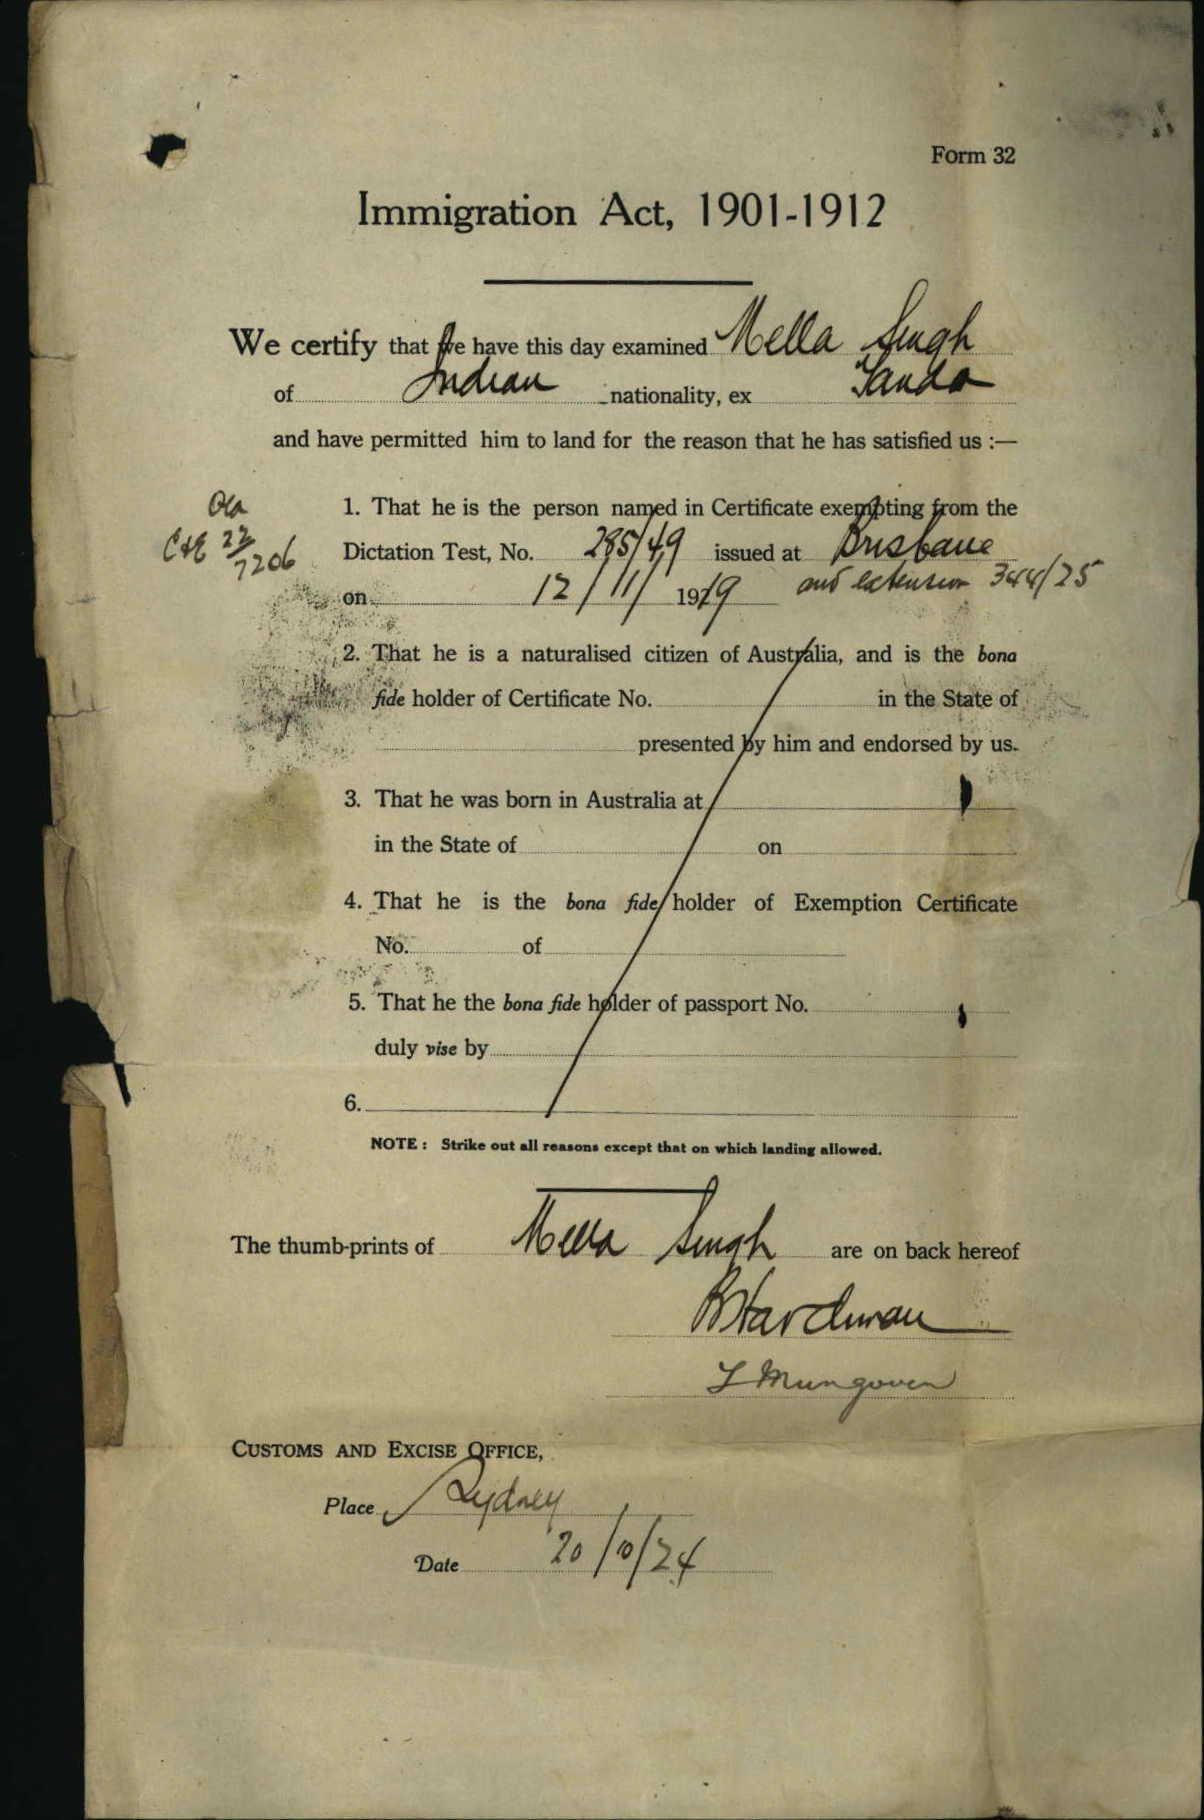 Form 32
Immigration Act, 1901-1912
We certify that we have this day examined Mella Singh
of Indian nationality, ex Tanda
and have permitted him to land for the reason that he has satisfied us :—
1. That he is the person named in Certificate exempting from the
Dictation Test, No. 285/49 issued at Brisbane
C&E 23/7206
on 12/11/1919 and extension 344/25
2. That he is a naturalised citizen of Australia, and is the bona
fide holder of Certificate No. in the State of
presented by him and endorsed by us.
3. That he was born in Australia at
in the State of on
4. That he is the bona fide holder of Exemption Certificate
No. of
5. That he the bona fide holder of passport No.
duly vise by
6.
NOTE : Strike out all reasons except that on which landing allowed.
The thumb-prints of Mella Singh are on back hereof
Hardman
Mungoven
CUSTOMS AND EXCISE OFFICE,
Place Sydney
Date 20/10/24